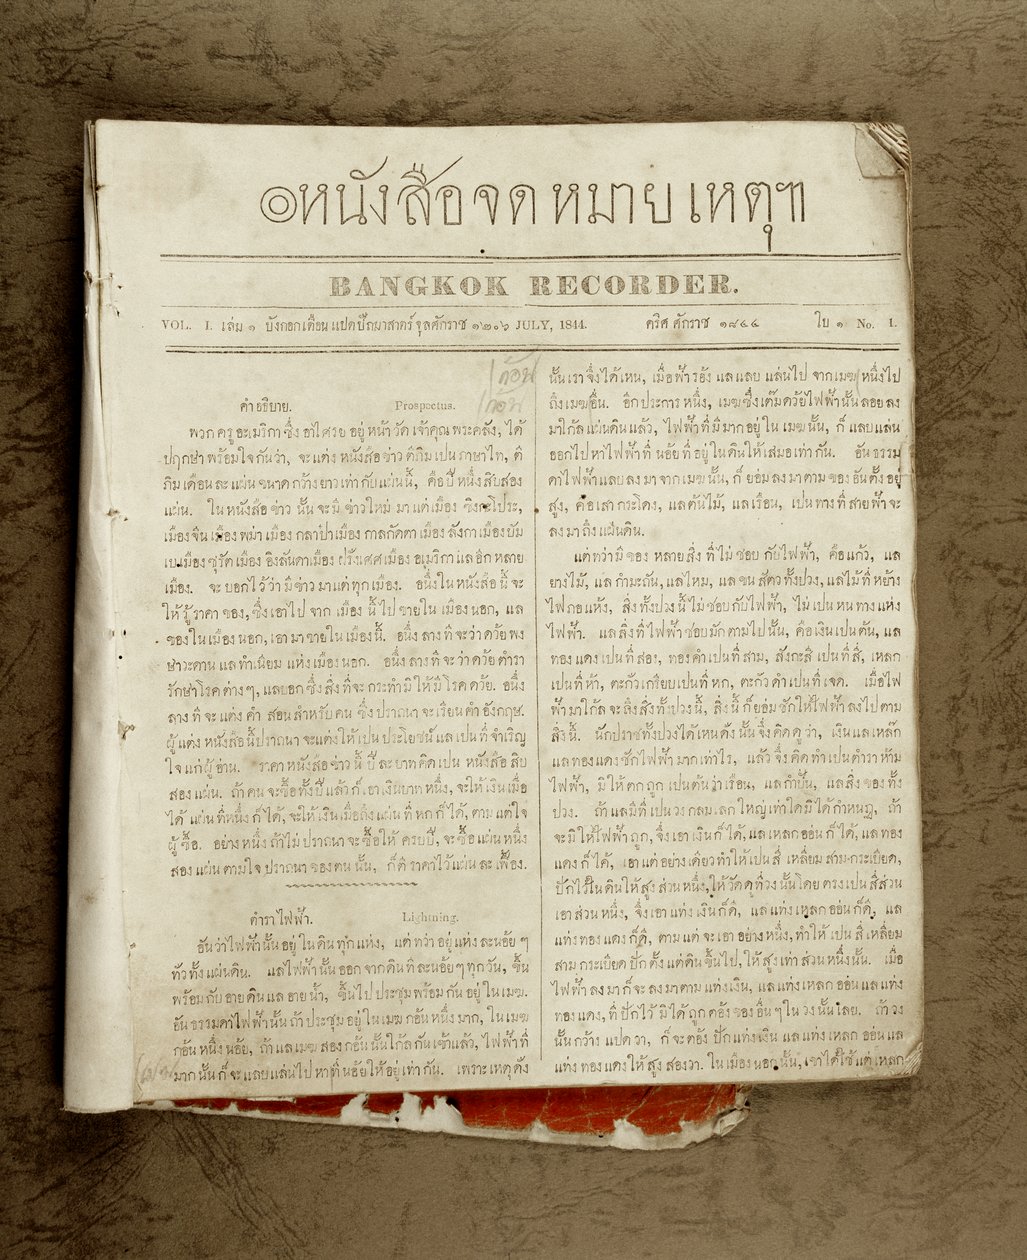 ๏หนังสือจดหมายเหตุฯ
BANGKOK RECORDER.
VOL. I. เล่ม ๑ บังกอกเดือนแปดปีกมาสาตร์ จุลศักราช ๑๒๐๖ JULY, 1844. คริศ ศักราช ๑๘๔๔ ใบ ๑ No. 1.
คำอธิบาย. Prospectus.
พวก ครู อะเมริกา ซึ่ง อาไศรย อยู่ หน้า วัด เจ้าคุณ พระคลัง, ได้
ปฤกษา พร้อมใจ กันว่า, จะแต่ง หนังสือ ข่าว ตีภิม เปน ภาษาไท, ตี
ภิม เดือน ละ แผ่น ขนาด กว้าง ยาว เท่า กับ แผ่น นี้, คือ ปี หนึ่ง สิบสอง
แผ่น. ใน หนังสือ ข่าว นั้น จะ มี ข่าว ใหม่ มา แต่ เมือง ซิงกะโประ,
เมือง จีน เมือง พม่า เมือง กลาป๋า เมือง กาลกัดตา เมือง ลังกา เมือง บัม
เบ เมือง ซุรัด เมือง อิงลันดา เมือง ฝรังเศศ เมือง อเมริกา แล อีก หลาย
เมือง. จะ บอก ไว้ ว่า มี ข่าว มา แต่ ทุก เมือง. อนึ่ง ใน หนังสือ นี้ จะ
ให้ รู้ ราคา ของ, ซึ่ง เอา ไป จาก เมือง นี้ ไป ขาย ใน เมือง นอก, แล
ของ ใน เมือง นอก, เอา มา ขาย ใน เมือง นี้. อนึ่ง ลาง ที จะ ว่า ด้วย พง
ษาวะดาน แล ทำเนียม แห่ง เมือง นอก. อนึ่ง ลาง ที จะ ว่า ด้วย ตำรา
รักษา โรค ต่าง ๆ, แล บอก ซึ่ง สิ่ง ที่ จะ กระทำ มิ ให้ มี โรค ด้วย. อนึ่ง
ลาง ที จะ แต่ง คำ สอน สำหรับ คน ซึ่ง ปราถนา จะ เรียน คำ อังกฤษ.
ผู้ แต่ง หนังสือ นี้ ปราถนา จะ แต่ง ให้ เปน ประโยชน์ แล เปน ที่ จำเริญ
ใจ แก่ ผู้ อ่าน. ราคา หนังสือ ข่าว นี้ ปี ละ บาท คิด เปน หนังสือ สิบ
สอง แผ่น. ถ้า คน จะ ซื้อ ทั้ง ปี แล้ว ก็ เอา เงิน บาท หนึ่ง, จะ ให้ เงิน เมื่อ
ได้ แผ่น ที่ หนึ่ง ก็ ได้, จะ ให้ เงิน เมื่อ ถึง แผ่น ที่ หก ก็ ได้, ตาม แต่ ใจ
ผู้ ซื้อ. อย่าง หนึ่ง ถ้า ไม่ ปราถนา จะ ซื้อ ให้ ครบ ปี, จะ ซื้อ แผ่น หนึ่ง
สอง แผ่น ตาม ใจ ปราถนา ของ ตน นั้น, ก็ ตี ราคา ไว้ แผ่น ละ เฟื้อง.
ตำรา ไฟฟ้า. Lightning.
อัน ว่า ไฟฟ้า นั้น อยู่ ใน ดิน ทุก แห่ง, แต่ ทว่า อยู่ แห่ง ละ น้อย ๆ
ทั่ว ทั้ง แผ่น ดิน. แล ไฟฟ้า นั้น ออก จาก ดิน ที ละ น้อย ๆ ทุก วัน, ขึ้น
พร้อม กับ อาย ดิน แล อาย น้ำ, ขึ้น ไป ประชุม พร้อม กัน อยู่ ใน เมฆ.
อัน ธรรมดา ไฟฟ้า นั้น ถ้า ประชุม อยู่ ใน เมฆ ก้อน หนึ่ง มาก, ใน เมฆ
ก้อน หนึ่ง น้อย, ถ้า แล เมฆ สอง ก้อน นั้น ใกล้ กัน เข้า แล้ว, ไฟฟ้า ที่
มาก นั้น ก็ จะ แลบ แล่น ไป หา ที่ น้อย ให้ อยู่ เท่า กัน. เพราะ เหตุ ดัง
นั้น เรา จึ่ง ได้ เหน, เมื่อ ฟ้า ร้อง แล แลบ แล่น ไป จาก เมฆ หนึ่ง ไป
ถึง เมฆ อื่น. อีก ประการ หนึ่ง, เมฆ ซึ่ง เต็ม ด้วย ไฟฟ้า นั้น ลอย ลง
มา ใกล้ แผ่น ดิน แล้ว, ไฟฟ้า ที่ มี มาก อยู่ ใน เมฆ นั้น, ก็ แลบ แล่น
ออก ไป หา ไฟฟ้า ที่ น้อย ที่ อยู่ ใน ดิน ให้ เสมอ เท่า กัน. อัน ธรรม
ดา ไฟฟ้า แลบ ลง มา จาก เมฆ นั้น, ก็ ย่อม ลง มา ตาม ของ อัน ตั้ง อยู่
สูง, คือ เสา กระโดง, แล ต้น ไม้, แล เรือน, เปน ทาง ที่ สาย ฟ้า จะ
ลง มา ถึง แผ่น ดิน.
แต่ ทว่า มี ของ หลาย สิ่ง ที่ ไม่ ชอบ กับ ไฟฟ้า, คือ แก้ว, แล
ยาง ไม้, แล กำมะถัน, แล ไหม, แล ขน สัตว ทั้ง ปวง, แล ไม้ ที่ หย้าง
ไฟ กอ แห้ง, สิ่ง ทั้ง ปวง นี้ ไม่ ชอบ กับ ไฟฟ้า, ไม่ เปน หน ทาง แห่ง
ไฟฟ้า. แล สิ่ง ที่ ไฟฟ้า ชอบ มัก ตาม ไป นั้น, คือ เงิน เปน ต้น, แล
ทอง แดง เปน ที่ สอง, ทอง คำ เปน ที่ สาม, สังกะสี เปน ที่ สี่, เหลก
เปน ที่ ห้า, ตะกั่ว เกรียบ เปน ที่ หก, ตะกั่ว ดำ เปน ที่ เจด. เมื่อ ไฟ
ฟ้า มา ใกล้ จะ ถึง สิ่ง ทั้ง ปวง นี้, สิ่ง นี้ ก็ ย่อม ชัก ให้ ไฟฟ้า ลง ไป ตาม
สิ่ง นี้. นัก ปราช ทั้ง ปวง ได้ เหน ดัง นั้น จึ่ง คิด ดู ว่า, เงิน แล เหล๊ก
แล ทอง แดง ชัก ไฟฟ้า มาก เท่าไร, แล้ว จึ่ง คิด ทำ เปน ตำรา ห้าม
ไฟฟ้า, มิ ให้ ตก ถูก เปน ต้น ว่า เรือน, แล กำปั่น, แล สิ่ง ของ ทั้ง
ปวง. ถ้า แล มี ที่ เปน วง กลม เลก ใหญ่ เท่าใด มิ ได้ กำหนฎ, ถ้า
จะ มิ ให้ ไฟฟ้า ถูก, จึ่ง เอา เงิน ก็ ได้, แล เหลก อ่อน ก็ ได้, แล ทอง
แดง ก็ ได้, เอา แต่ อย่าง เดียว ทำ ให้ เปน สี่ เหลี่ยม สาม กระเบียด,
ปัก ไว้ ใน ดิน ให้ สูง ส่วน หนึ่ง, ให้ วัด ดู ที่ วง นั้น โดย ตรง เปน สี่ ส่วน
เอา ส่วน หนึ่ง, จึ่ง เอา แท่ง เงิน ก็ ดี, แล แท่ง เหลก อ่อน ก็ ดี, แล
แท่ง ทอง แดง ก็ ดี, ตาม แต่ จะ เอา อย่าง หนึ่ง, ทำ ให้ เปน สี่ เหลี่ยม
สาม กระเบียด ปัก ตั้ง แต่ ดิน ขึ้น ไป, ให้ สูง เท่า ส่วน หนึ่ง นั้น. เมื่อ
ไฟฟ้า ลง มา ก็ จะ ลง มา ตาม แท่ง เงิน, แล แท่ง เหลก อ่อน แล แท่ง
ทอง แดง, ที่ ปัก ไว้ มิ ได้ ถูก ต้อง ของ อื่น ๆ ใน วง นั้น เลย. ถ้า วง
นั้น กว้าง แปด วา, ก็ จะ ต้อง ปัก แท่ง เงิน แล แท่ง เหลก อ่อน แล
แท่ง ทอง แดง ให้ สูง สอง วา. ใน เมือง นอก นั้น, เขา ได้ ใช้ แต่ เหลก